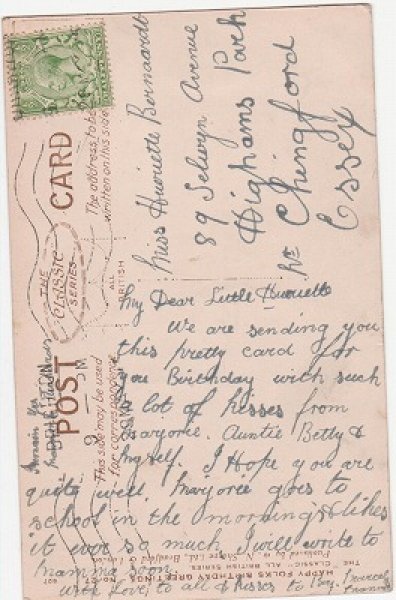 POST CARD
THE
Classic
SERIES
ALL
BRITISH
This side may be used
for correspondence
The address to be
written on this side
Miss Henriette Bernaardt
89 Selwyn Avenue
Highams Park
Nr Chingford
Essex
My Dear Little Henriette
We are sending you
this pretty card for
you Birthday with such
a lot of kisses from
Marjorie. Auntie Betty &
Myself. I Hope you are
quite well. Marjorie goes to
school in the mornings & likes
it ever so much I will write to
Mamma soon.
with Love, to all & kisses to
HAPPY FOLKS BIRTHDAY GREETINGS
THE "CLASSIC" ALL BRITISH SERIES.